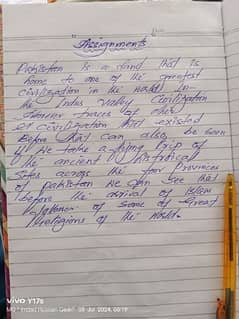 "Assignments"
Pakistan is a land that is
home to one of the greatest
civilization in the world In
the Indus Valley Civilization
traces of other
civilization that existed
Before that can also be seen
we take a trip of
the ancient histrical
sites across the four Provinces
of pakistan we can see that
before the arrival of islam
of some of Great
religions of the world.
vivo Y17s
08 Jul 2024, 00:19